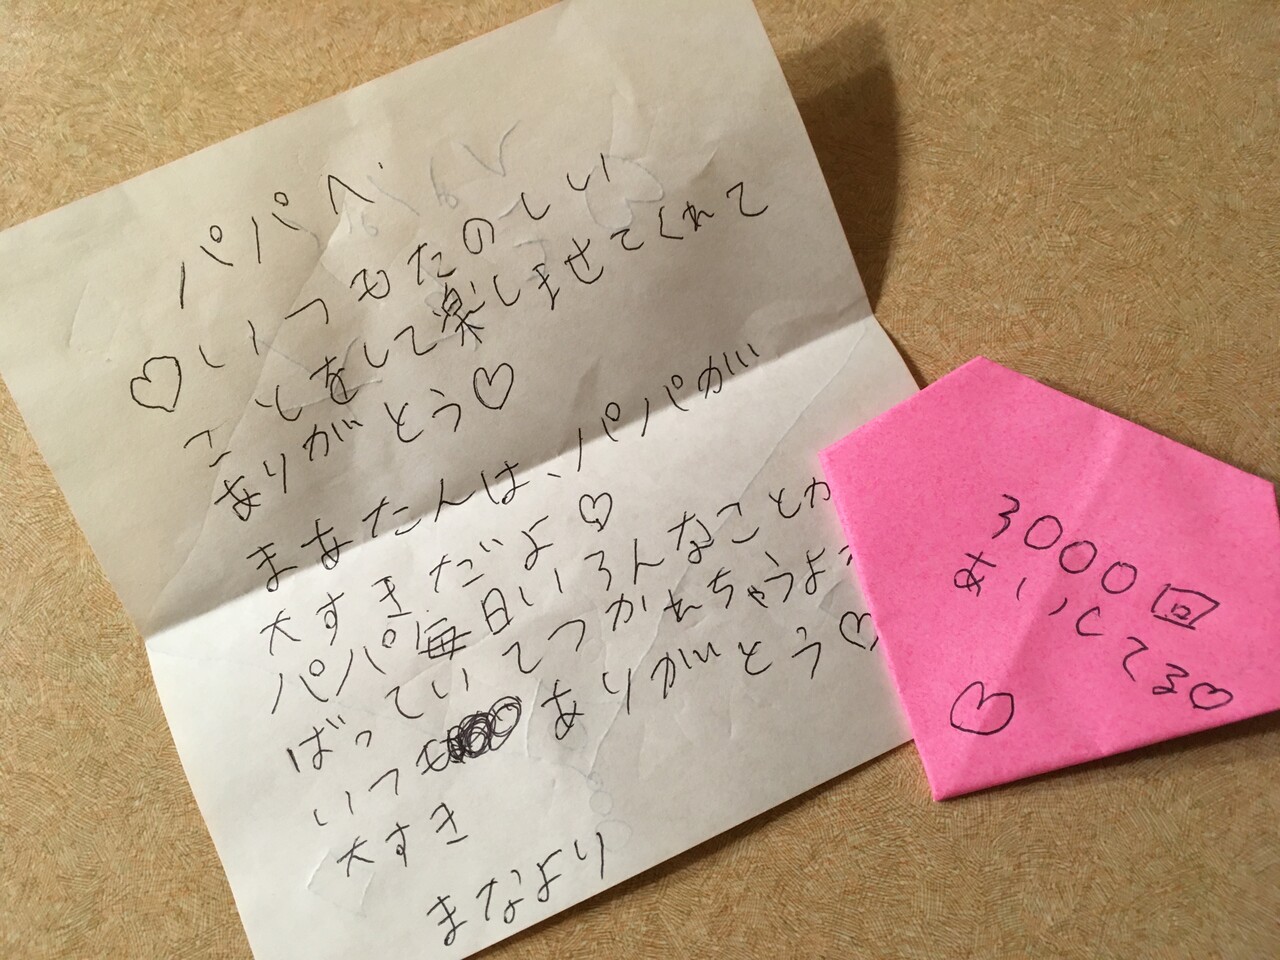 パパへ
♡いつもたのしい
ことをして楽しませてくれて
ありがとう♡
まあたんは、パパが
大すきだよ♡
パパ毎日いろんなことが
ばっていてつかれちゃうよ
いつも ありがとう♡
大すき
まなより
3000回
あいしてる♡
♡